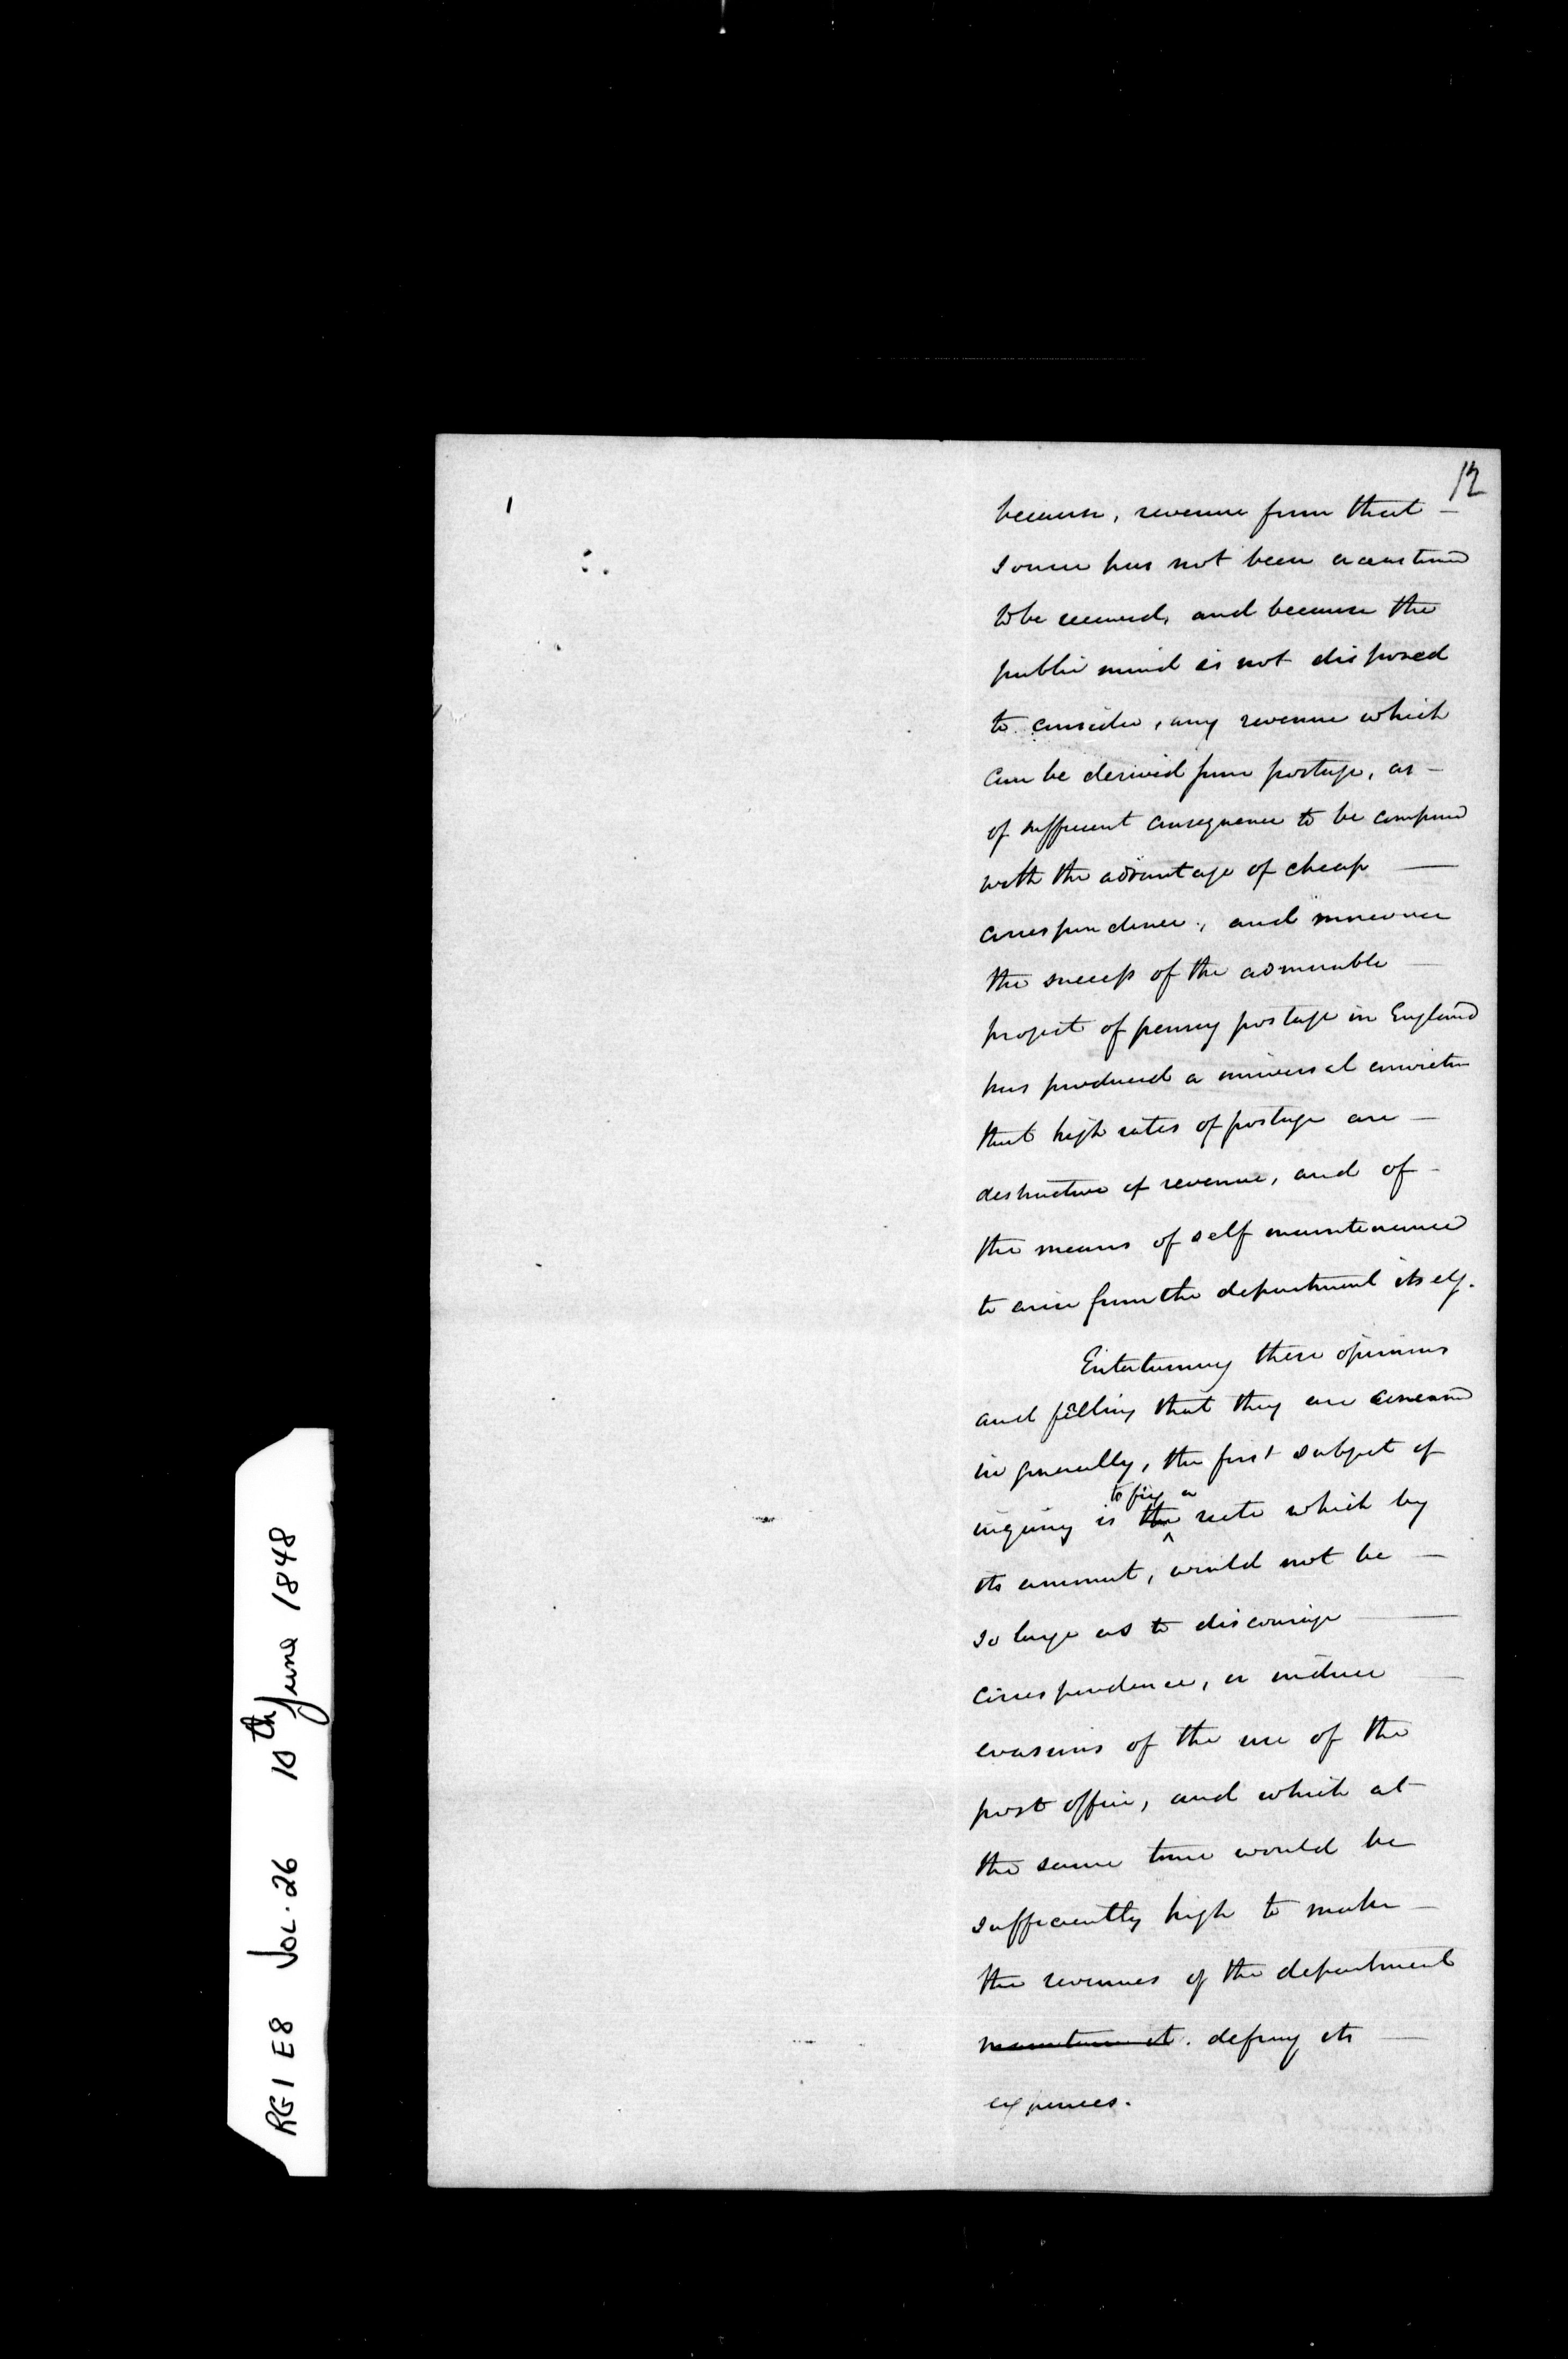 12
because, revenue from that –
source has not been accustomed
to be received, and because the
public mind is not disposed
to consider, any revenue which
can be derived from postage, as –
of sufficient consequence to be compared
with the advantage of cheap —
correspondence, and moreover
the success of the admirable —
project of penny postage in England
has produced a universal conviction
that high rates of postage are —
destructive of revenue, and of –
the means of self maintenance
to arise from the department itself.
Entertaining these opinions
and feeling that they are concurred
in generally, the first subject of
to fix a
inquiry is the rate which by
its amount, would not be —
so large as to discourage —
correspondence, or induce —
evasions of the use of the
post office, and which at
the same time would be
sufficiently high to make –
the revenues of the department
defray its —
expences.
RG 1 E8 VOL. 26 10th June 1848